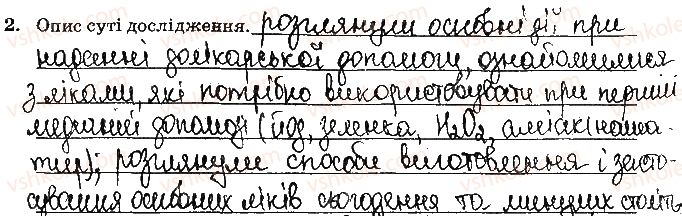 2. Опис суті дослідження. розглянули основні дії при
наденні долікарської допомоги, ознайомилися
з ліками, які потрібно використовувати при першій
медичній допомозі (йод, зеленка, H₂O₂, аміак (наша-
тир); розглянули способи виготовлення і засто-
сування основних ліків сьогодення та минулих століть